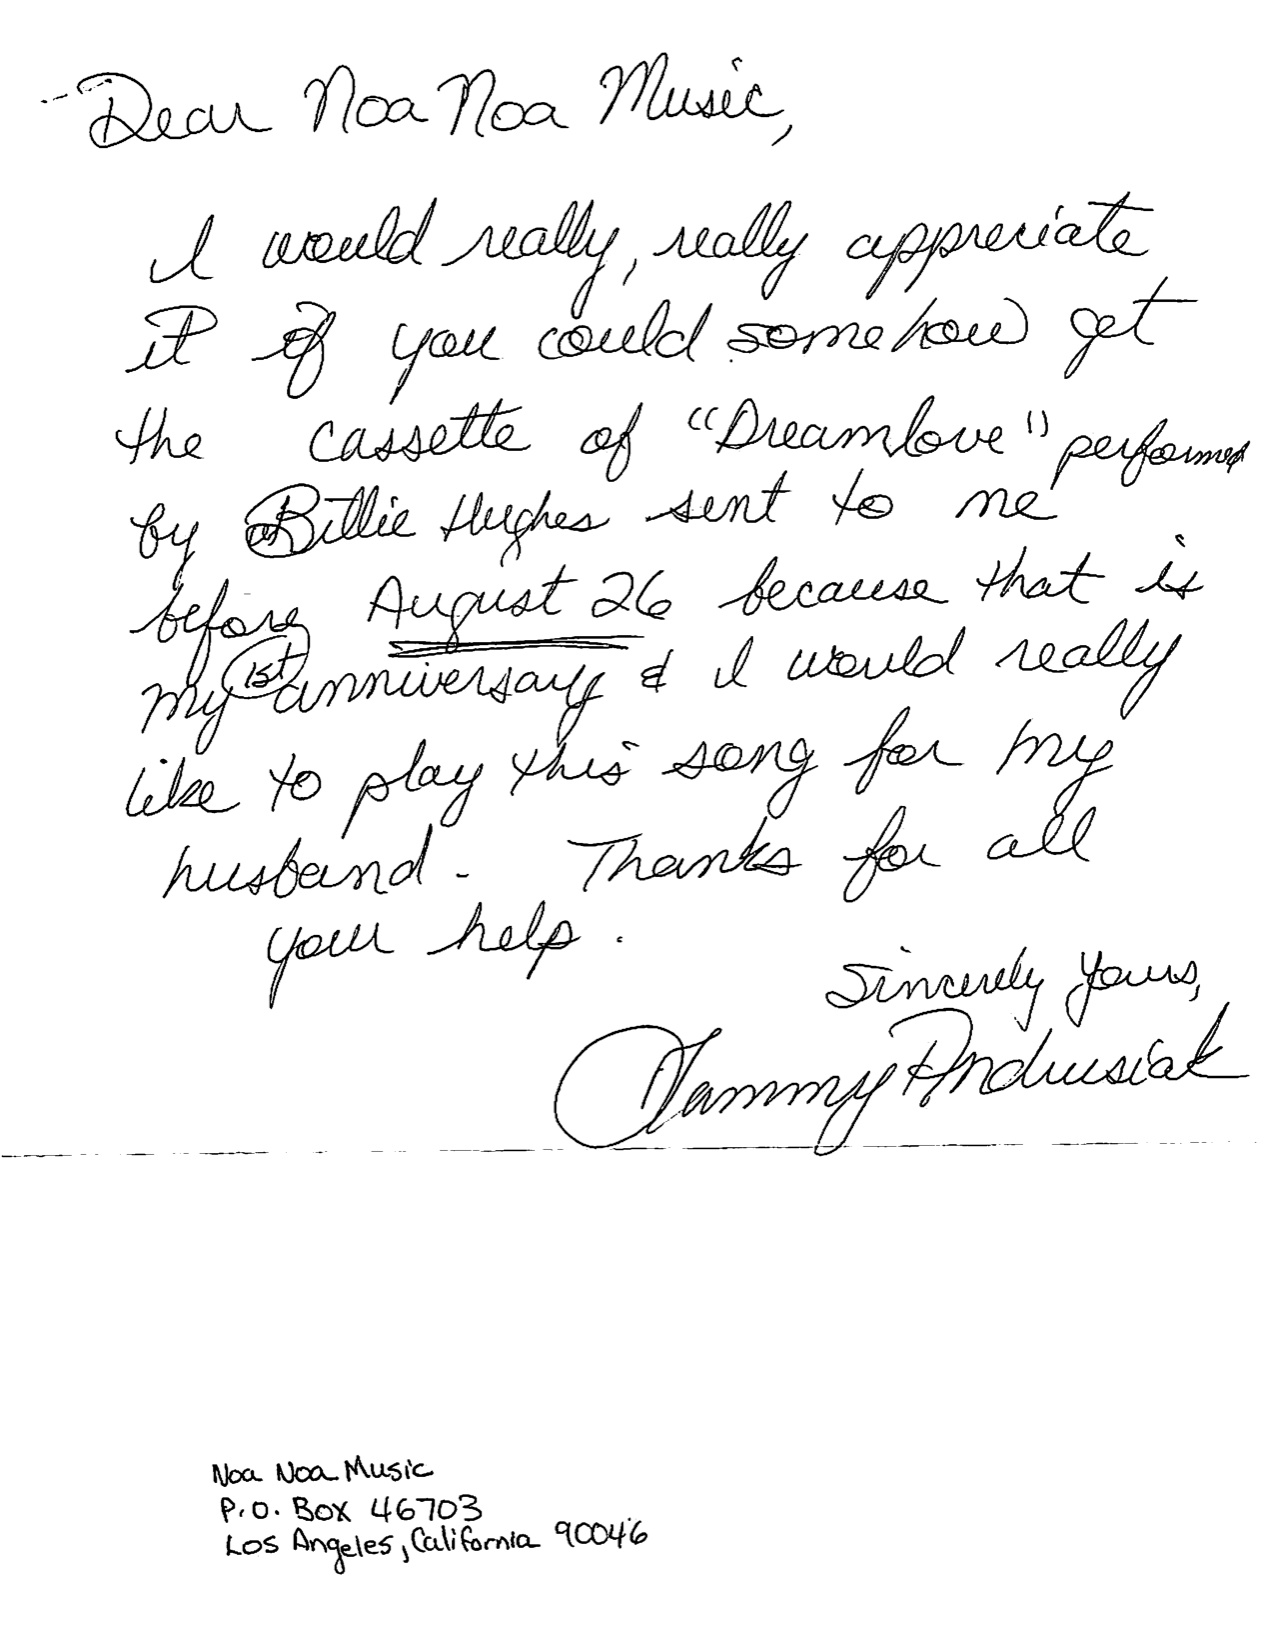 Dear Noa Noa Music,
I would really, really appreciate
it if you could somehow get
the cassette of "Dreamlove" performed
by Billie Hughes sent to me
before August 26 because that is
my 1st anniversay & I would really
like to play this song for my
husband. Thanks for all
your help.
Sincerely Yours,
Tammy Andrusiak
Noa Noa Music
P.O. Box 46703
Los Angeles, California 90046